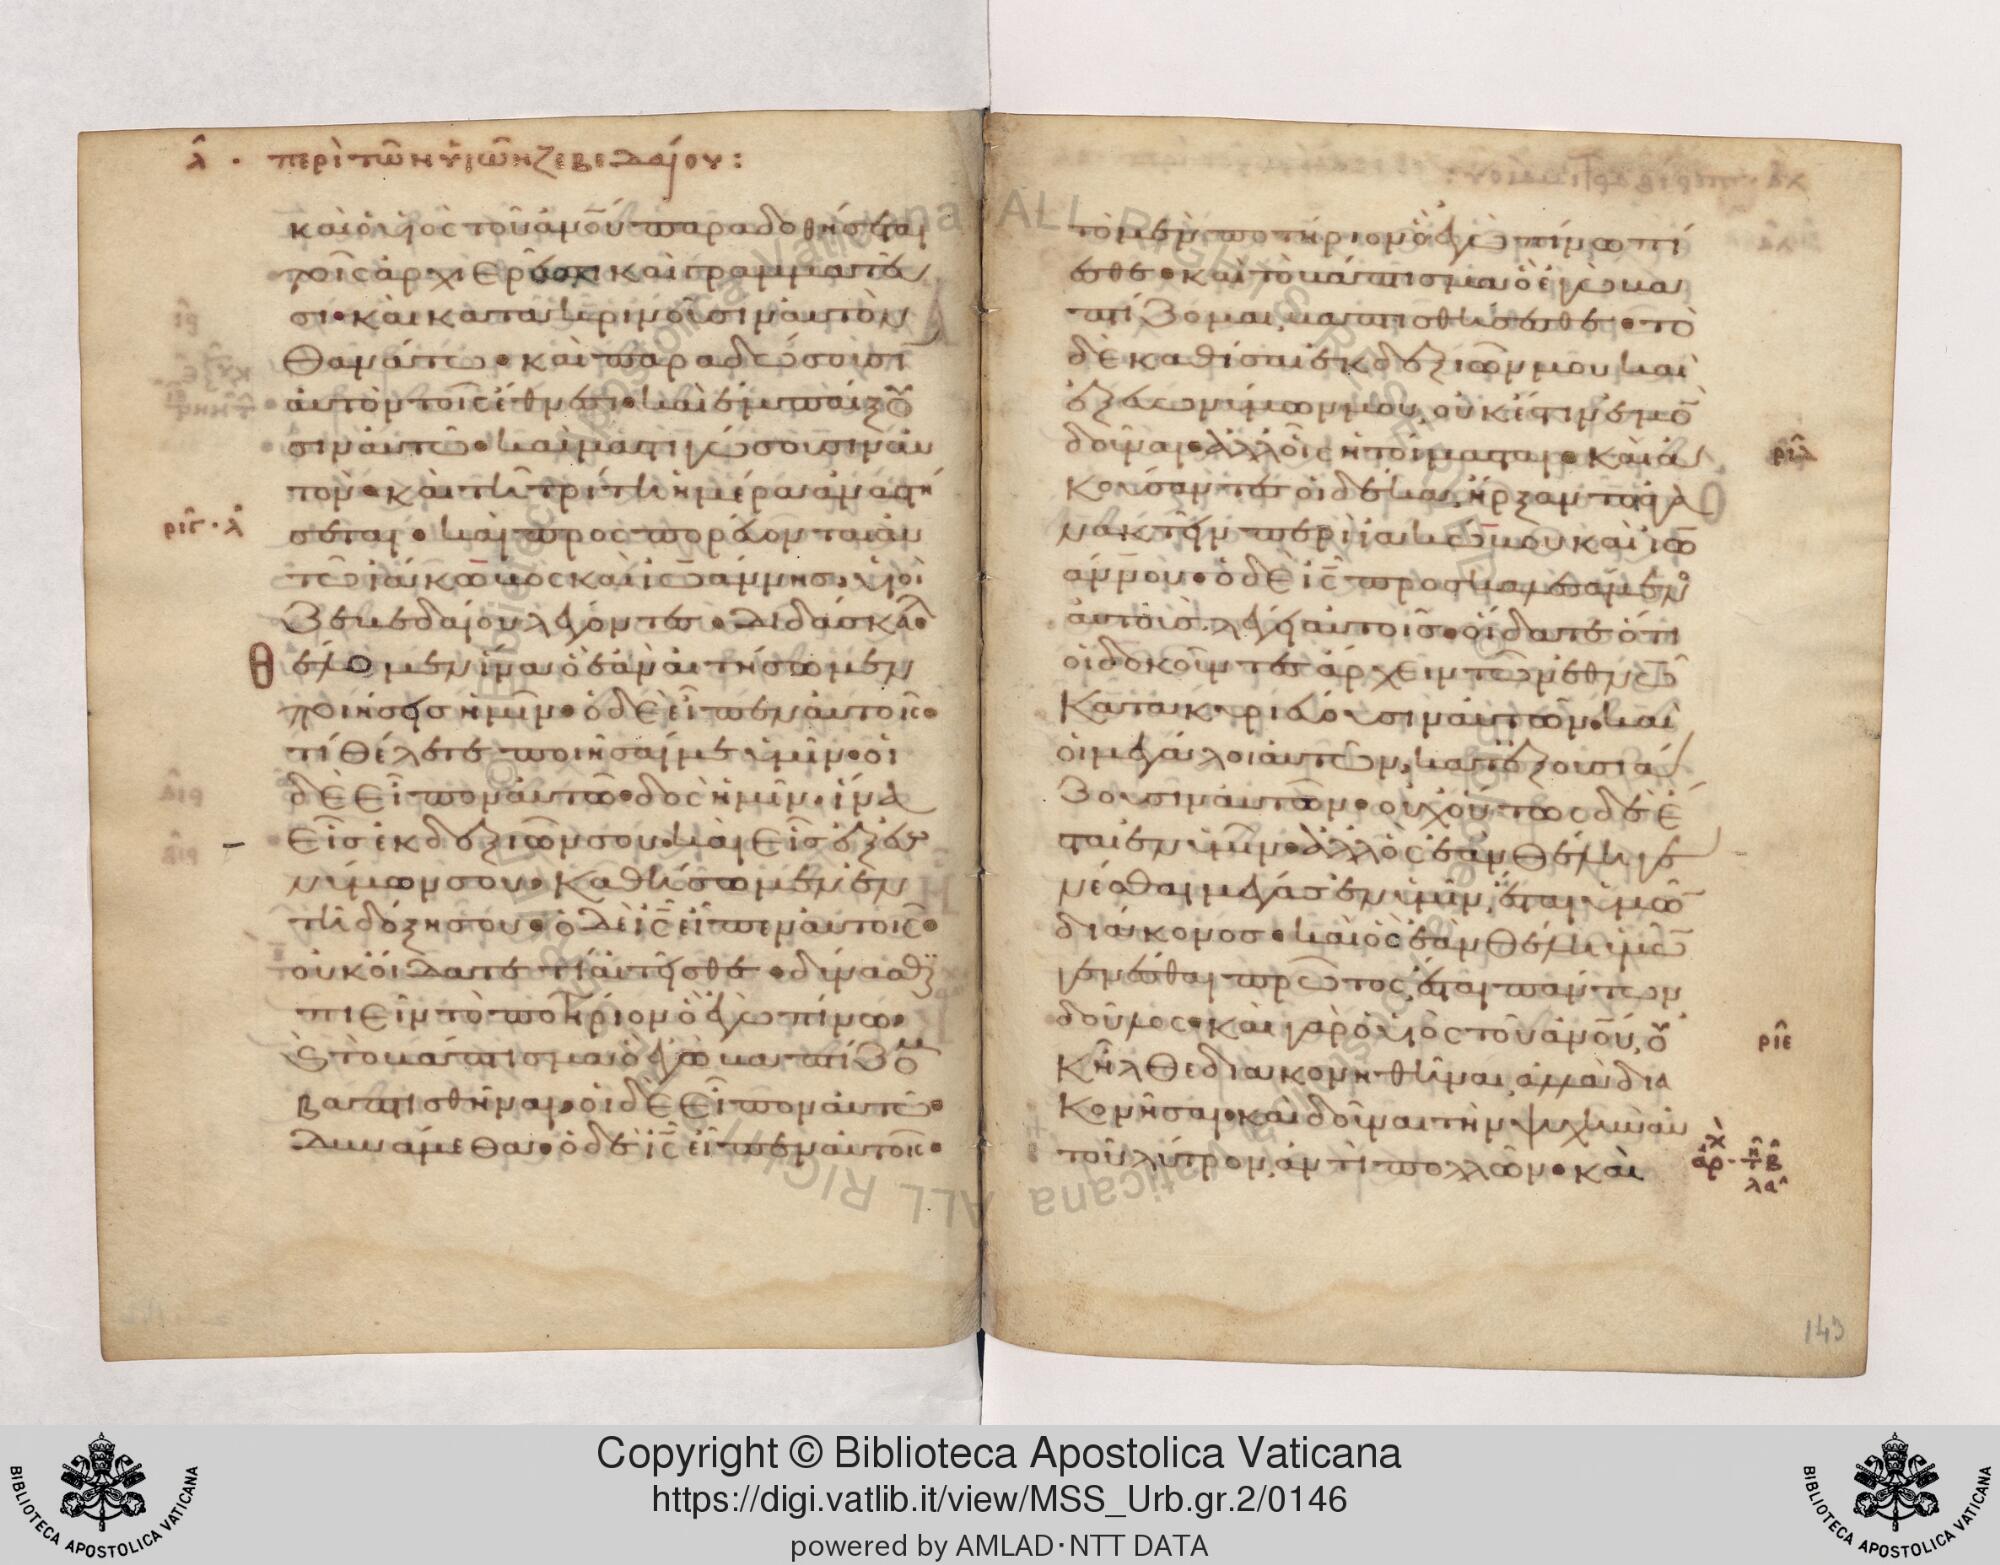 λ̂ · περὶ τῶν υἱῶν ζεβεδαίου:
καὶ ὁ υἱὸς τοῦ ἀν̅ο̅υ̅ παραδοθήσεται
τοῖς ἀρχιερεῦσι καὶ γραμματεῦ
σι· καὶ κατακρινοῦσιν αὐτὸν
θανάτω· καὶ παραδώσουσι
αὐτὸν τοῖς ἔθνεσι· καὶ ἐμπαίζου
σιν αὐτῶ· καὶ μαστιγώσουσιν αὐ
τόν· καὶ τῆ τρίτη ἡμέρα ἀναστή
σεται· καὶ προσπορεύονται αὐ
ριγ̂· λ̂
τῶ ἰάκωβος καὶ ἰωάννης, υἱοὶ
ζεβεδαίου λέγοντες· διδάσκαλ
θέλομεν ἵνα ὃ ἐὰν αἰτήσωμεν
ποιήσης ἡμῖν· ὁ δὲ εἶπεν αὐτοῖς·
τί θέλετε ποιῆσαί με ὑμῖν· οἱ
δὲ εἶπον αὐτῶ· δὸς ἡμῖν, ἵνα
εἷς ἐκ δεξιῶν σου· καὶ εἷς ἐξ εὐω
νύμων σου· καθήσωμεν ἐν
τῆ δόξη σου· ὁ δὲ ι̅ς̅ εἶπεν αὐτοῖς·
οὐκ οἴδατε τί αἰτεῖσθε· δύνασθε
πιεῖν τὸ ποτήριον ὃ ἐγὼ πίνω·
καὶ τὸ βάπτισμα ὃ ἐγὼ βαπτίζομ
βαπτισθῆναι· οἱ δὲ εἶπον αὐτῶ·
δυνάμεθα· ὁ δὲ ι̅ς̅ εἶπεν αὐτοῖς·
τὸ μὲν ποτήριον ὃ ἐγὼ πίνω πί
εσθε· καὶ τὸ βάπτισμα ὃ ἐγὼ βα
πτίζομαι, βαπτισθήσεσθε· τὸ
δὲ καθίσαι ἐκ δεξιῶν μου καὶ
ἐξ εὐωνύμων μου, οὐκ ἔστιν ἐμὸ
δοῦναι· ἀλλ' οἷς ἡτοίμασται· καὶ ἀ
ριδ̂
κούσαντες οἱ δέκα, ἤρξαντο ἀγα
νακτεῖν περὶ ἰακώβου καὶ ἰω
άννου· ὁ δὲ ι̅ς̅ προσκαλεσάμενο
αὐτοὺς, λέγει αὐτοῖς· οἴδατε ὅτι
οἱ δοκοῦντες ἄρχειν τῶν ἐθνῶ
κατακυριεύουσιν αὐτῶν· καὶ
οἱ μεγάλοι αὐτῶν, κατεξουσιά
ζουσιν αὐτῶν· οὐχ οὕτως δὲ ἔ
σται ἐν ὑμῖν· ἀλλ' ὃς ἐὰν θέλη γε
νέσθαι μέγας ἐν ὑμῖν, ἔσται ὑμῶ
διάκονος· καὶ ὃς ἐὰν θέλη ὑμῶ
γενέσθαι πρῶτος, ἔσται πάντων
δοῦλος· καὶ γὰρ ὁ υἱὸς τοῦ ἀν̅ο̅υ̅, οὐ
ριε̂
κ ἦλθε διακονηθῆναι, ἀλλὰ δια
κονῆσαι· καὶ δοῦναι τὴν ψυχὴν αὐ
τοῦ λύτρον, ἀντὶ πολλῶν· καὶ
ἀρχ
λα
143
Copyright © Biblioteca Apostolica Vaticana
https://digi.vatlib.it/view/MSS_Urb.gr.2/0146
powered by AMLAD·NTT DATA
BIBLIOTECA APOSTOLICA VATICANA
BIBLIOTECA APOSTOLICA VATICANA